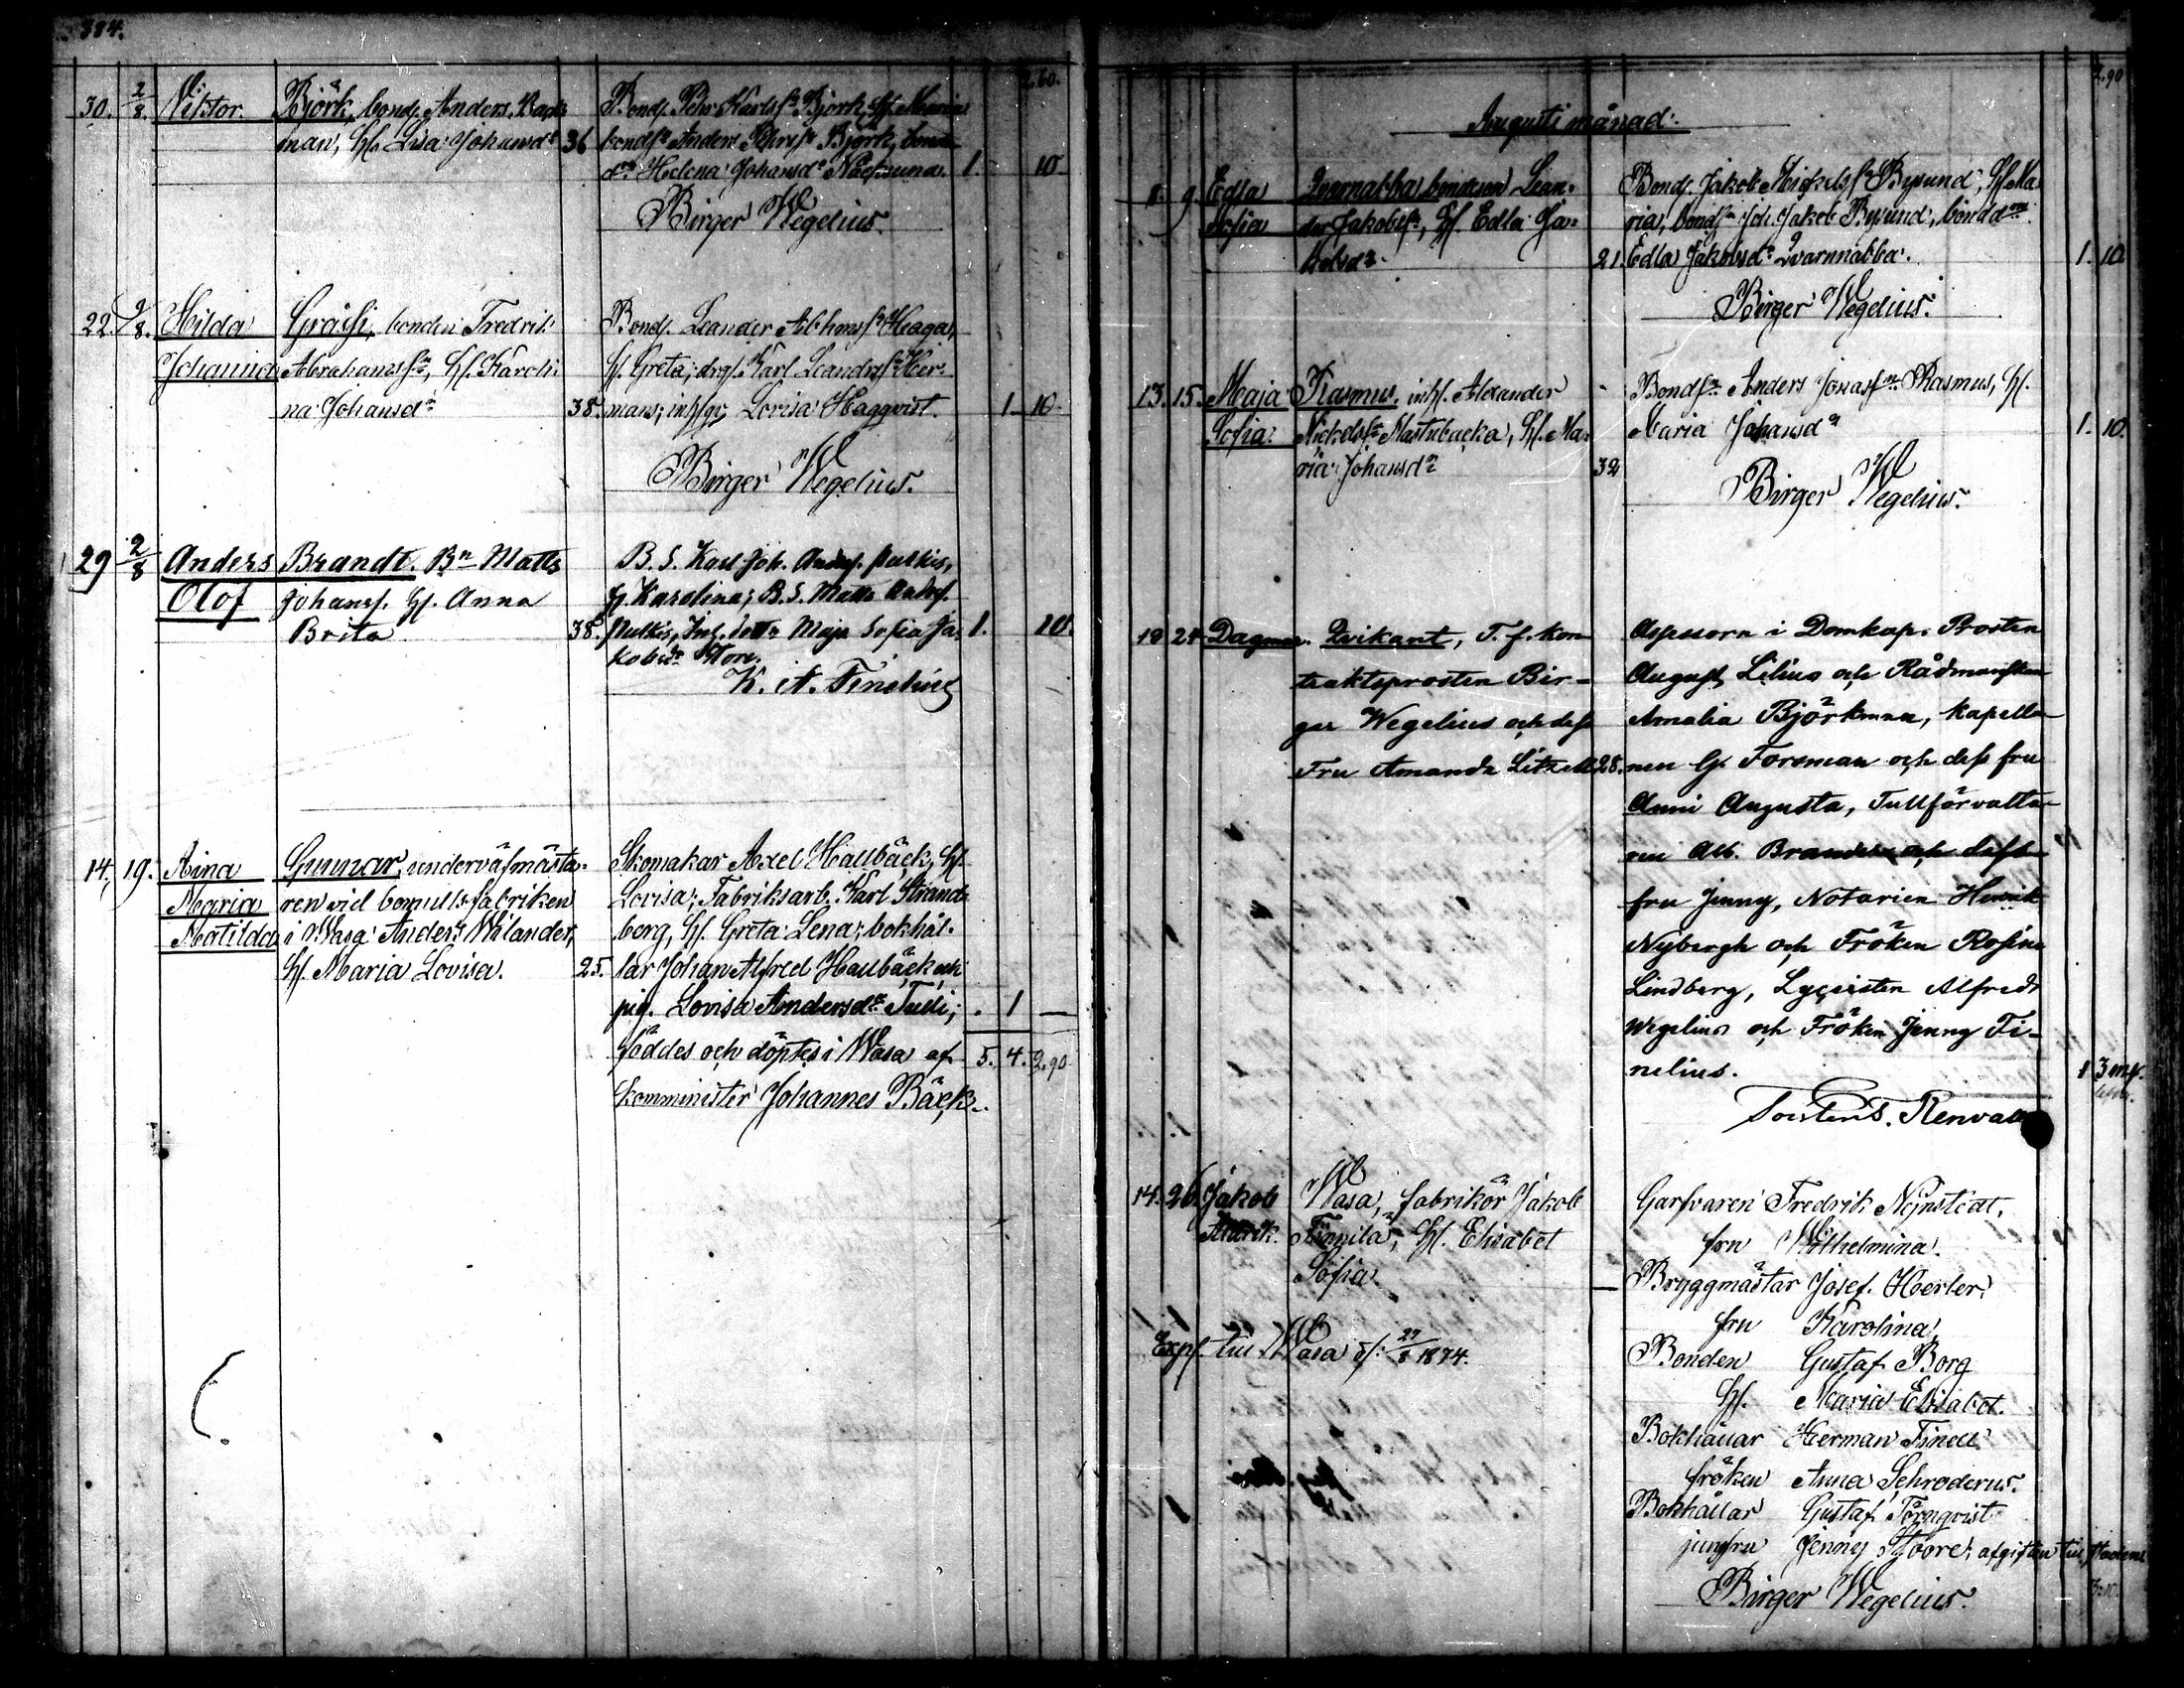 384.
2.60.
30. 2/8. Viktor. Björk, bond. Anders Back-
man, H. Lisa Johansdr 36
Bonds. Pehr Karlss. Björk, H. Maria
bondsn Anders Pehrss. Björk, bond-
dn. Helena Johansdr 1. 10
Birger Wegelius.
22. 9/8. Hilda Gräss, bonden Fredrik
Johanna Abrahamssn, H. Karoli-
na Johansdr 38.
Bonds. Leander Abrhmss. Haga,
H. Greta; drg. Karl Leandrss. Her-
mans; inhpg. Lovisa Hagqvist. 1. 10
Birger Wegelius.
29 2/8 Anders Brandt. Bn Matts
Olof Johanss. H. Anna
Brita 38.
B. S. Karl Joh. Anders. Pulkis,
H. Karolina; B. S. Matts Anders.
Pulkis, Inh. dottr Maja Sofia Ja- 1. 10.
kobsdr
K. A. Finelius
14. 19. Aina Gunnar, underväfmästa-
Maria ren vid bomullsfabriken
Matilda i Wasa Anders Wilander,
H. Maria Lovisa. 25.
Skomakar Axel Hallbäck, H.
Lovisa; Fabriksarb. Karl Strand-
berg, H. Greta Lena; bokhål-
lar Johan Alfred Hallbäck och
pig. Lovisa Andersdr Tulli; 1
föddes och döptes i Wasa af 5. 4. 2.90
Komminister Johannes Bäck.
2.90
Augusti månad.
8. 9. Edla Qvarnabba bondeson Lean-
Sofia der Jakobss., H. Edla Ja-
kobsdr. 21.
Bonds. Jakob Mickelss. Bysund, H. Ma-
ria, bondsn Joh. Jakob Bysund, bonddn
Edla Jakobsdr Qvarnnabba. 1. 10
Birger Wegelius.
13. 15. Maja Rasmus. inh. Alexander
Sofia. Mickelss. Mastubacka, H. Ma-
ria Johansdr 32
Bondsn Anders Jonassn Rasmus, H.
Maria Johansdr 1. 10.
Birger Wegelius.
18 24 Dagmar. Qvikant, T. f. kon-
traktsprosten Bir-
ger Wegelius och dess
Fru Amanda Litzell 28.
Assessorn i Domkap. Prosten
August Lilius och Rådmanskan
Amalia Björkman, kapella-
nen G. Forsman och dess fru
Anni Augusta, Tullförvalta-
ren Alb. Brander och dess
fru Jenny, Notarien Henrik
Nybergh och Fröken Rosina
Lindberg, Lyceisten Alfred
Wegelius och Fröken Jenny Fi-
nelius. 1 3 mk.
Torsten S. Renvall
14. 26. Jakob Wasa, fabrikör Jakob
Finnila, H. Elisabet
Sofia.
Exp. till Wasa d. 27/8 1874.
Garfvaren Fredrik Nynstedt,
fru Wilhelmina.
Bryggmästar Josef Herler,
fru Karolina,
Bonden Gustaf Borg
H. Maria Elisabet.
Bokhållar Herman Finell
fröken Anna Schroderus.
Bokhållar Gustaf Törnqvist
jungfru Jenny Stoore; afgiften till staden.
Birger Wegelius.